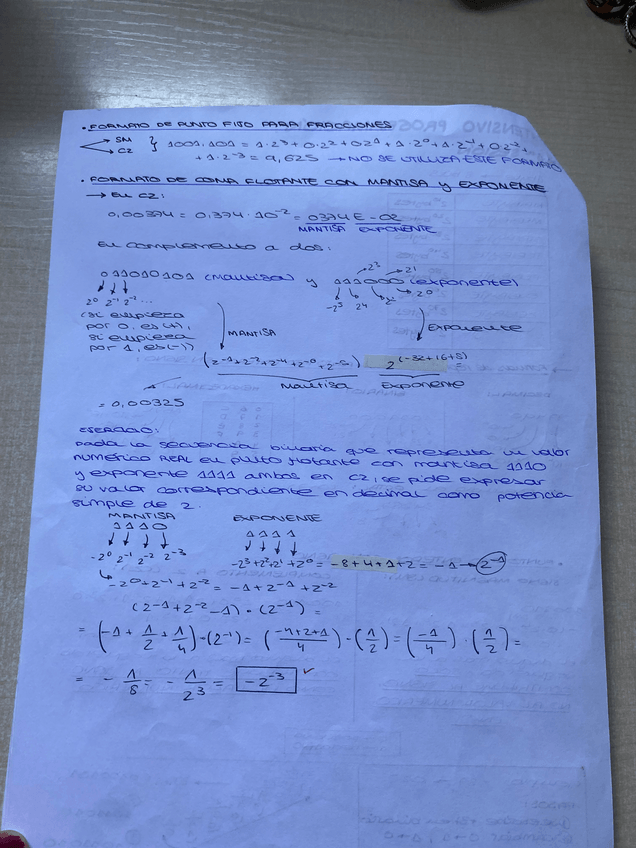 • FORMATO DE PUNTO FIJO PARA FRACCIONES
→ SM
→ C2
} 1001.101 = 1·2³ + 0·2² + 0·2¹ + 1·2⁰ + 1·2⁻¹ + 0·2⁻² +
+ 1·2⁻³ = 9,625 → NO SE UTILIZA ESTE FORMATO
• FORMATO DE COMA FLOTANTE CON MANTISA Y EXPONENTE
→ EN C2:
0,00374 = 0,374 · 10⁻² = 0374 E - 02
MANTISA EXPONENTE
En complemento a dos:
011010101 (Mantisa) y 111000 (exponente)
2⁰ 2⁻¹ 2⁻² ...
(si empieza
por 0, es (+),
si empieza
por 1, es (-))
MANTISA
EXPONENTE
2^(-32+16+8)
Mantisa Exponente
= 0,00325
EJERCICIO:
Dada la secuencia binaria que representa un valor
numérico REAL en punto flotante con mantisa 1110
y exponente 1111 ambos en C2, se pide expresar
su valor correspondiente en decimal como potencia
simple de 2.
MANTISA EXPONENTE
1110 1111
-2⁰ 2⁻¹ 2⁻² 2⁻³ -2³+2²+2¹+2⁰ = -8+4+1+2 = -1 → 2⁻¹
↳ -2⁰+2⁻¹+2⁻² = -1+2⁻¹+2⁻²
(2⁻¹+2⁻²-1) · (2⁻¹) =
= (-1 + 1/2 + 1/4) · (2⁻¹) = (-4+2+1/4) · (1/2) = (-1/4) · (1/2) =
= - 1/8 = - 1/2³ = -2⁻³